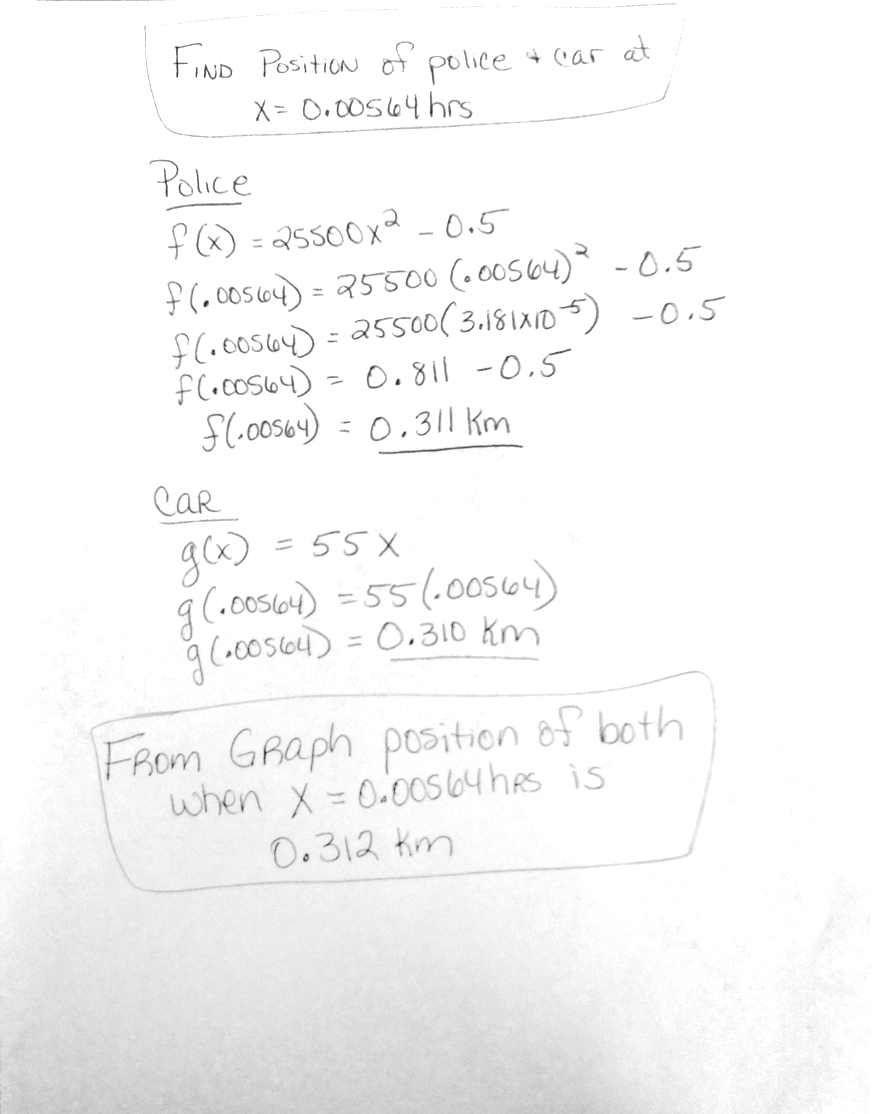 FIND Position of police + car at
X = 0.00564 hrs
Police
f(x) = 25500x² - 0.5
f(.00564) = 25500 (.00564)² - 0.5
f(.00564) = 25500(3.181x10⁻⁵) - 0.5
f(.00564) = 0.811 - 0.5
f(.00564) = 0.311 Km
CAR
g(x) = 55 X
g(.00564) = 55(.00564)
g(.00564) = 0.310 Km
FROM GRaph position of both
when X = 0.00564 hRs is
0.312 Km